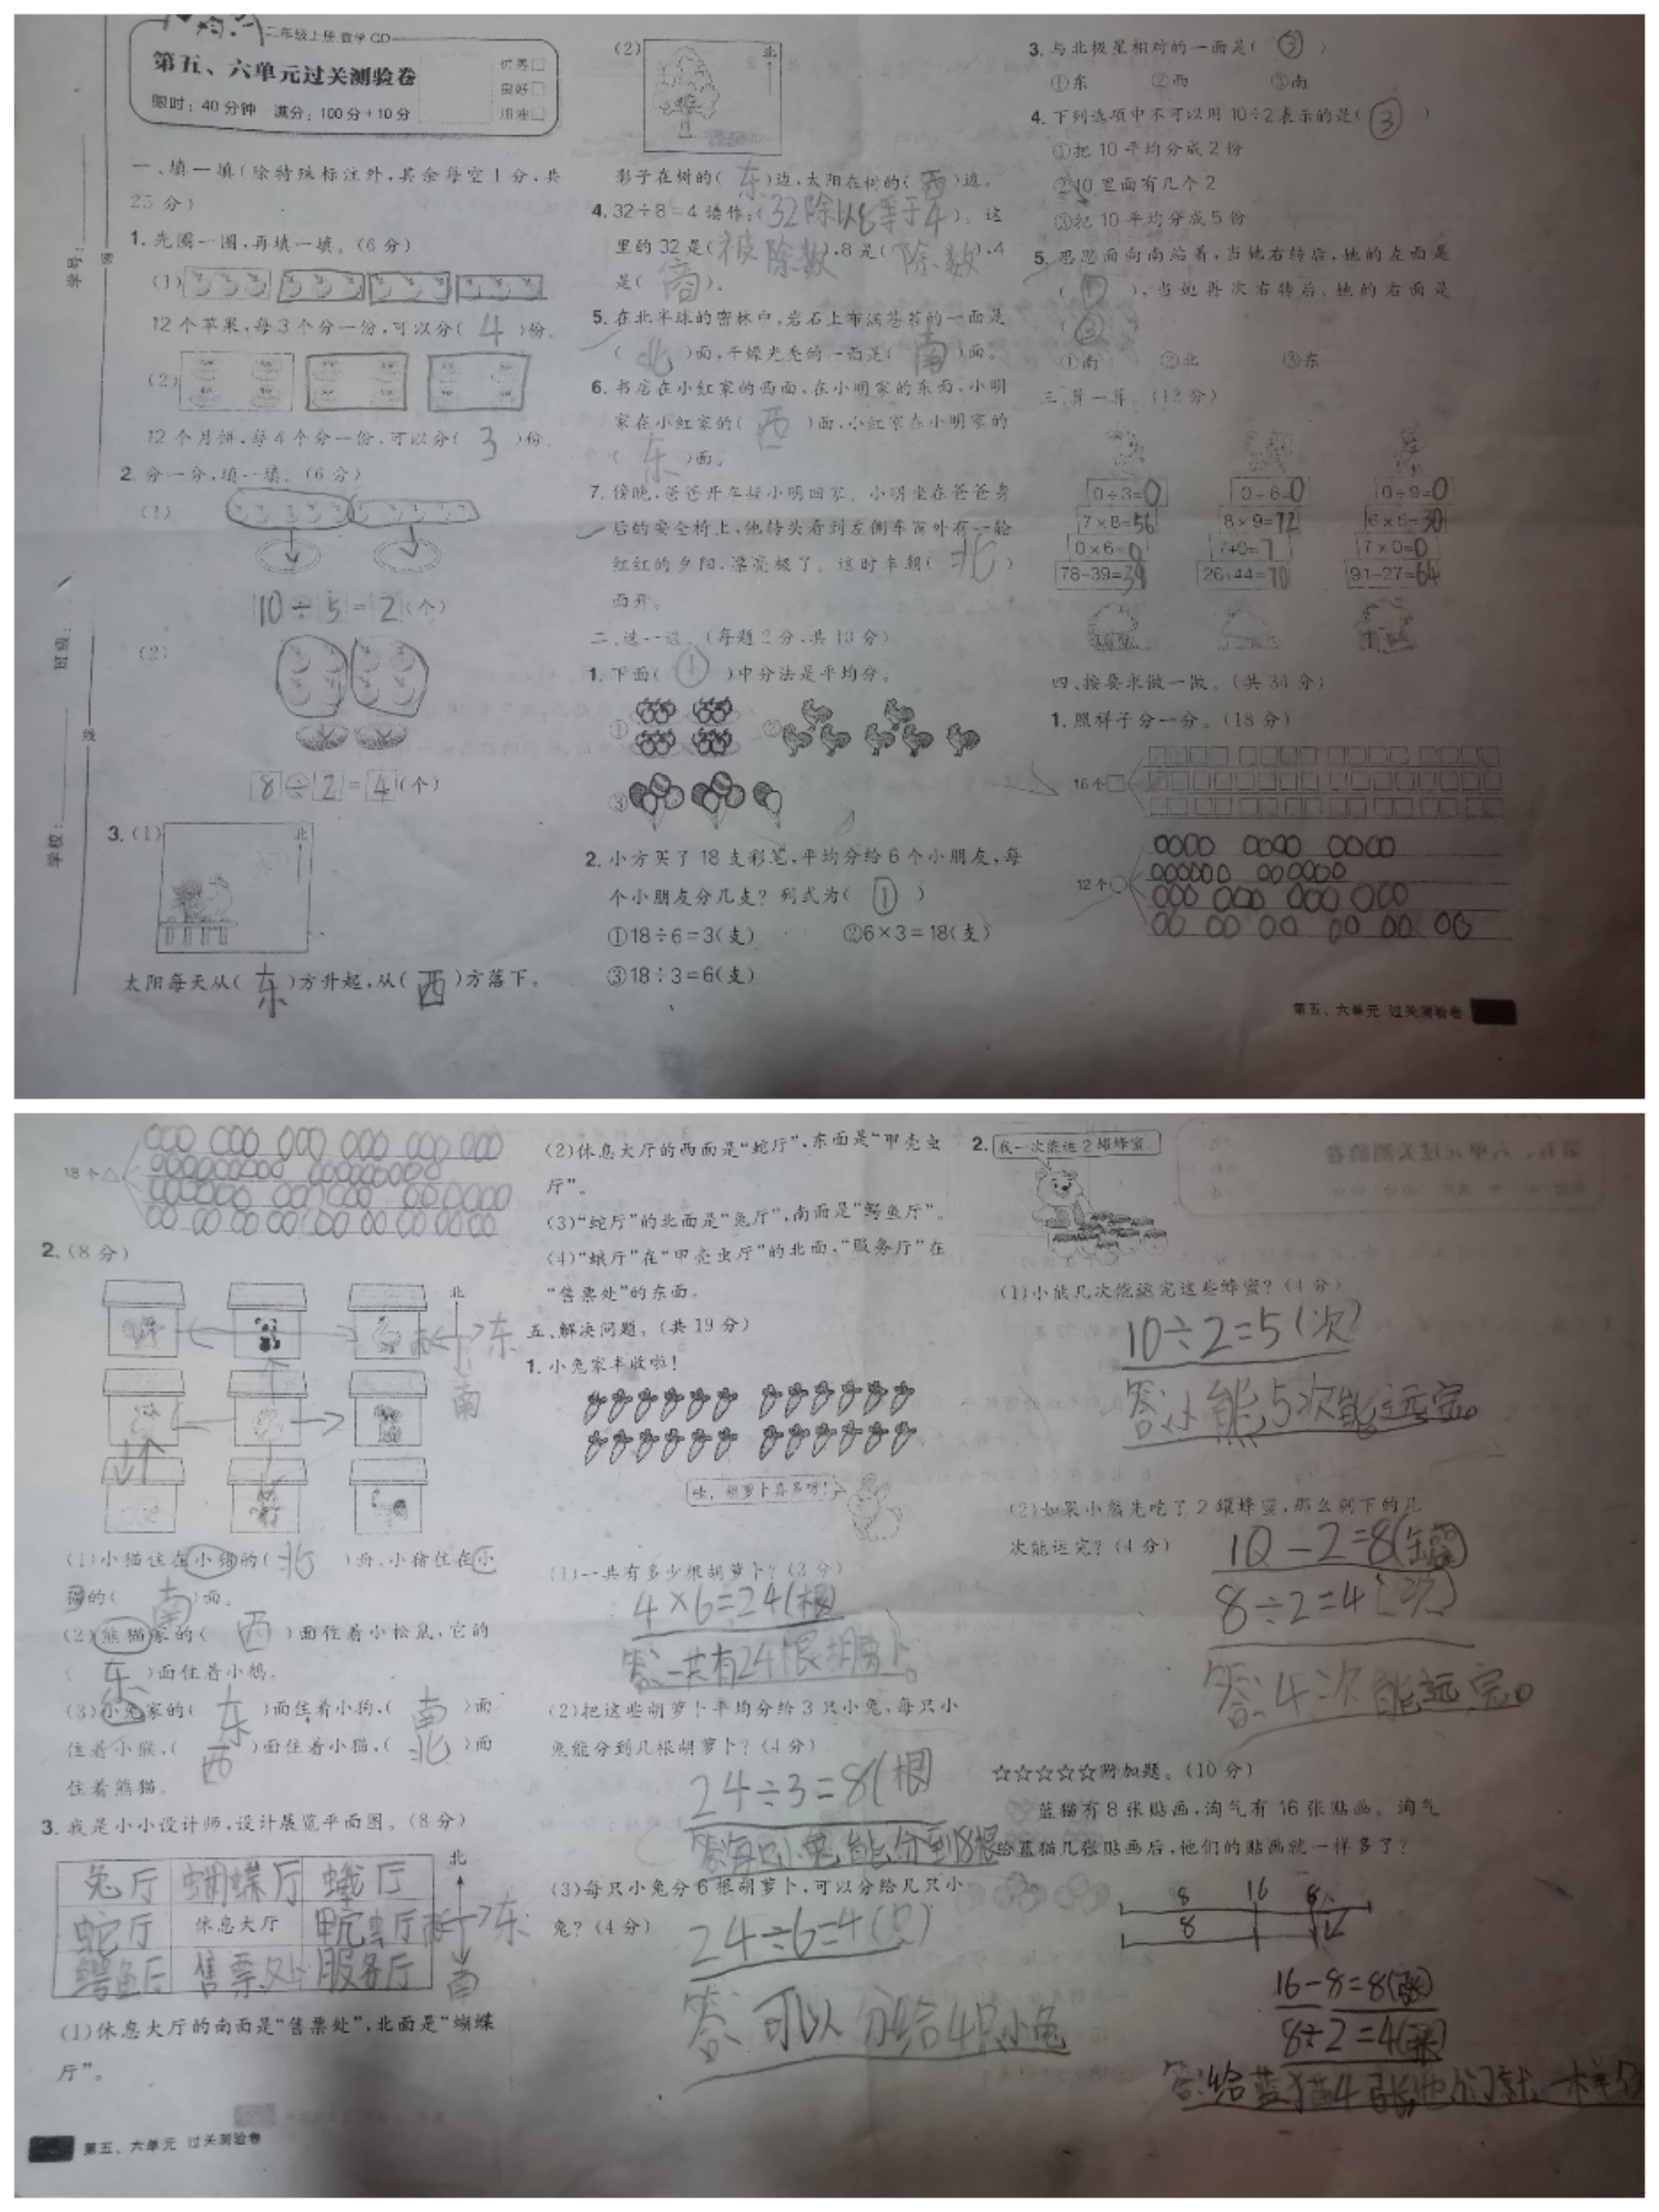 二年级上册 数学 GD
第五、六单元过关测验卷
优秀□
良好□
加油□
限时：40分钟 满分：100分+10分
学号：
班级：
学校：
一、填一填(除特殊标注外,其余每空1分,共
25分)
1. 先圈一圈,再填一填。(6分)
(1)
12个苹果,每3个分一份,可以分( 4 )份。
(2)
12个月饼,每4个分一份,可以分( 3 )份。
2. 分一分,填一填。(6分)
(1)
10÷5=2(个)
(2)
8÷2=4(个)
3. (1)
北
太阳每天从( 东 )方升起,从( 西 )方落下。
(2)
北
影子在树的( 东 )边,太阳在树的( 西 )边。
4. 32÷8=4读作:( 32除以8等于4 )。这
里的32是( 被除数 ),8是( 除数 ),4
是( 商 )。
5. 在北半球的密林中,岩石上布满苔藓的一面是
( 北 )面,干燥光秃的一面是( 南 )面。
6. 书店在小红家的西面,在小明家的东面,小明
家在小红家的( 西 )面,小红家在小明家的
( 东 )面。
7. 傍晚,爸爸开车接小明回家。小明坐在爸爸身
后的安全椅上,他转头看到左侧车窗外有一轮
红红的夕阳,漂亮极了。这时车朝( 北 )
面开。
二、选一选。(每题2分,共10分)
1. 下面( ① )中分法是平均分。
①
②
③
2. 小方买了18支彩笔,平均分给6个小朋友,每
个小朋友分几支？列式为( ① )
①18÷6=3(支) ②6×3=18(支)
③18÷3=6(支)
3. 与北极星相对的一面是( ③ )
①东 ②西 ③南
4. 下列选项中不可以用10÷2表示的是( ③ )
①把10平均分成2份
②10里面有几个2
③把10平均分成5份
5. 思思面向南站着,当她右转后,她的左面是
( ① ),当她再次右转后,她的右面是
( ③ )
①南 ②北 ③东
三、算一算。(12分)
0÷3=0 0÷6=0 0÷9=0
7×8=56 8×9=72 6×5=30
0×6=0 7+0=7 7×0=0
78-39=39 26+44=70 91-27=64
四、按要求做一做。(共34分)
1. 照样子分一分。(18分)
16个□
12个○
第五、六单元 过关测验卷
18个△
2. (8分)
北
东
南
(1)小猫住在小猪的( 北 )面,小猪住在小
猫的( 南 )面。
(2)熊猫家的( 西 )面住着小松鼠,它的
( 东 )面住着小鹅。
(3)小兔家的( 东 )面住着小狗,( 南 )面
住着小猴,( 西 )面住着小猫,( 北 )面
住着熊猫。
3. 我是小小设计师,设计展览平面图。(8分)
兔厅 蝴蝶厅 蛾厅
蛇厅 休息大厅 甲壳虫厅
鳄鱼厅 售票处 服务厅
北
东
南
(1)休息大厅的南面是“售票处”,北面是“蝴蝶
厅”。
第五、六单元 过关测验卷
(2)休息大厅的西面是“蛇厅”,东面是“甲壳虫
厅”。
(3)“蛇厅”的北面是“兔厅”,南面是“鳄鱼厅”。
(4)“蛾厅”在“甲壳虫厅”的北面,“服务厅”在
“售票处”的东面。
五、解决问题。(共19分)
1. 小兔家丰收啦！
哇,胡萝卜真多呀！
(1)一共有多少根胡萝卜？(3分)
4×6=24(根)
答:一共有24根胡萝卜。
(2)把这些胡萝卜平均分给3只小兔,每只小
兔能分到几根胡萝卜？(4分)
24÷3=8(根)
答:每只小兔能分到8根
(3)每只小兔分6根胡萝卜,可以分给几只小
兔？(4分)
24÷6=4(只)
答:可以分给4只小兔
2. 我一次能运2罐蜂蜜。
(1)小熊几次能运完这些蜂蜜？(4分)
10÷2=5(次)
答:小熊5次能运完。
(2)如果小熊先吃了2罐蜂蜜,那么剩下的几
次能运完？(4分)
10-2=8(罐)
8÷2=4(次)
答:4次能运完。
☆☆☆☆☆附加题。(10分)
蓝猫有8张贴画,淘气有16张贴画。淘气
给蓝猫几张贴画后,他们的贴画就一样多了？
8 16 8
8
16-8=8(张)
8÷2=4(张)
答:给蓝猫4张,他们就一样多